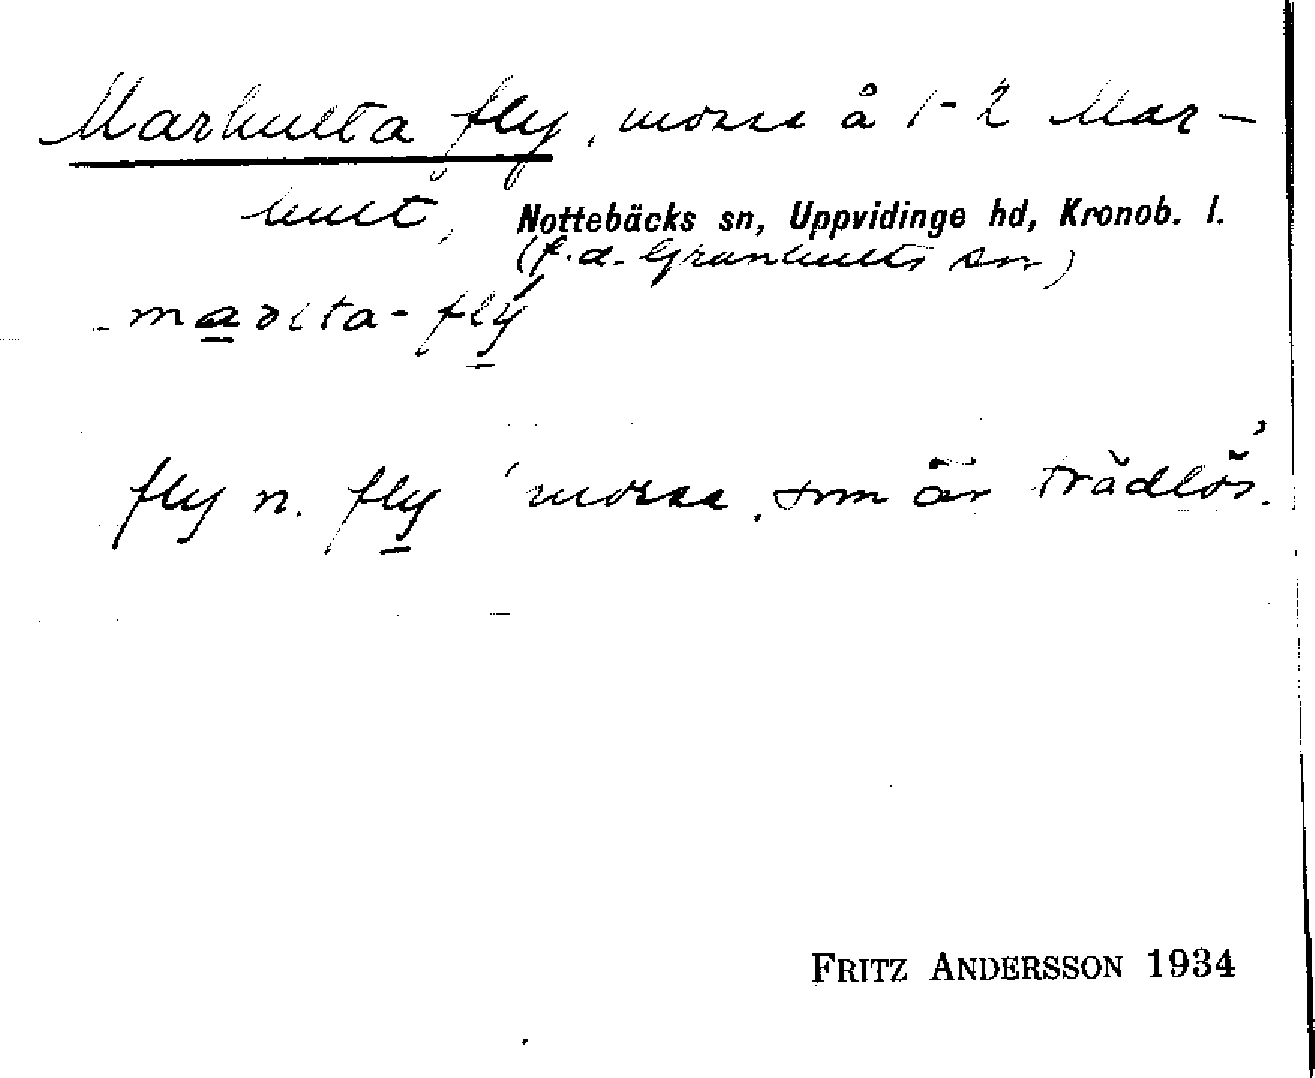 Marhulta fly, mosse å 1-2 Mar-
hult, Nottebäcks sn, Uppvidinge hd, Kronob. l.
(f.d. Granhults sn)
fly n. fly 'mosse, som är trädlös.'
FRITZ ANDERSSON 1934